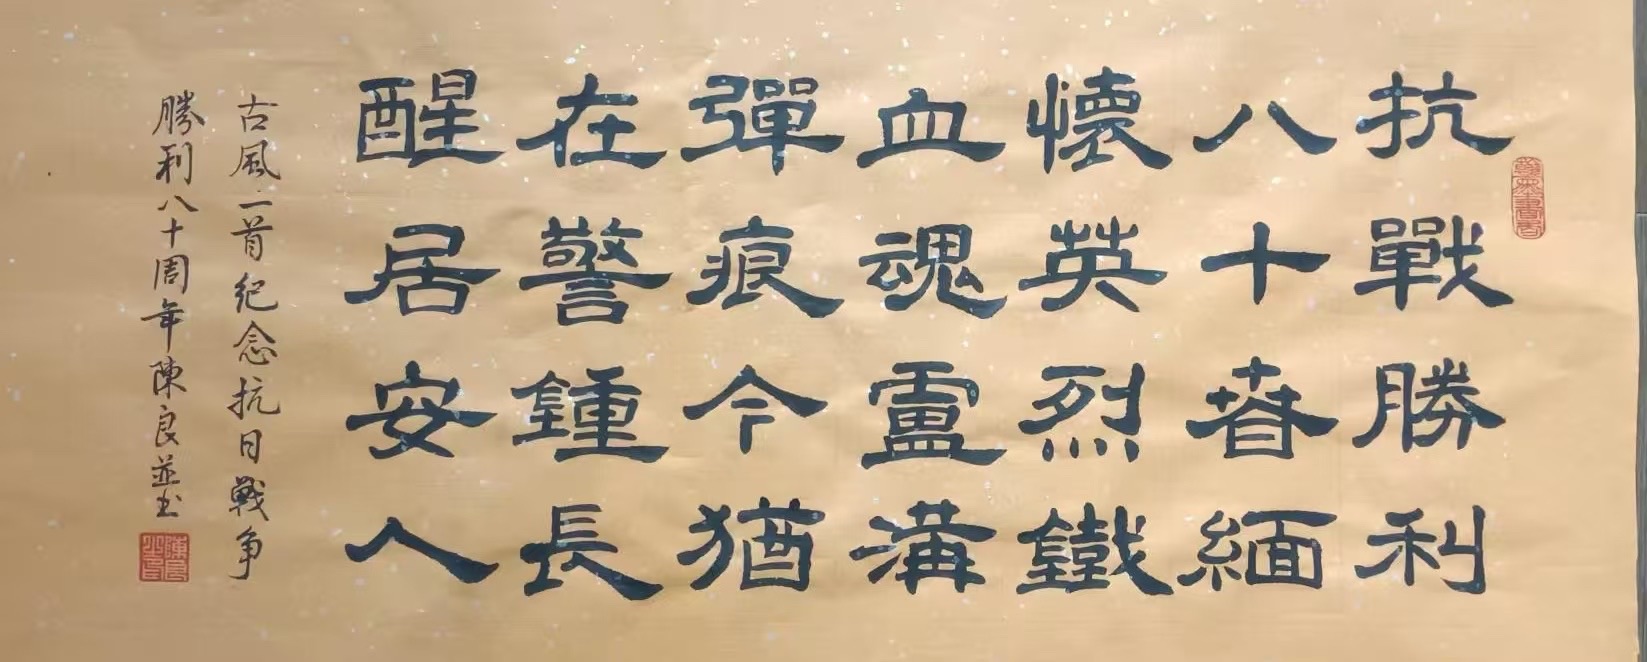 抗戰勝利
八十春緬
懷英烈鐵
血魂盧溝
彈痕今猶
在警鍾長
醒居安人
古风一首紀念抗日戰争
勝利八十周年陳良並书